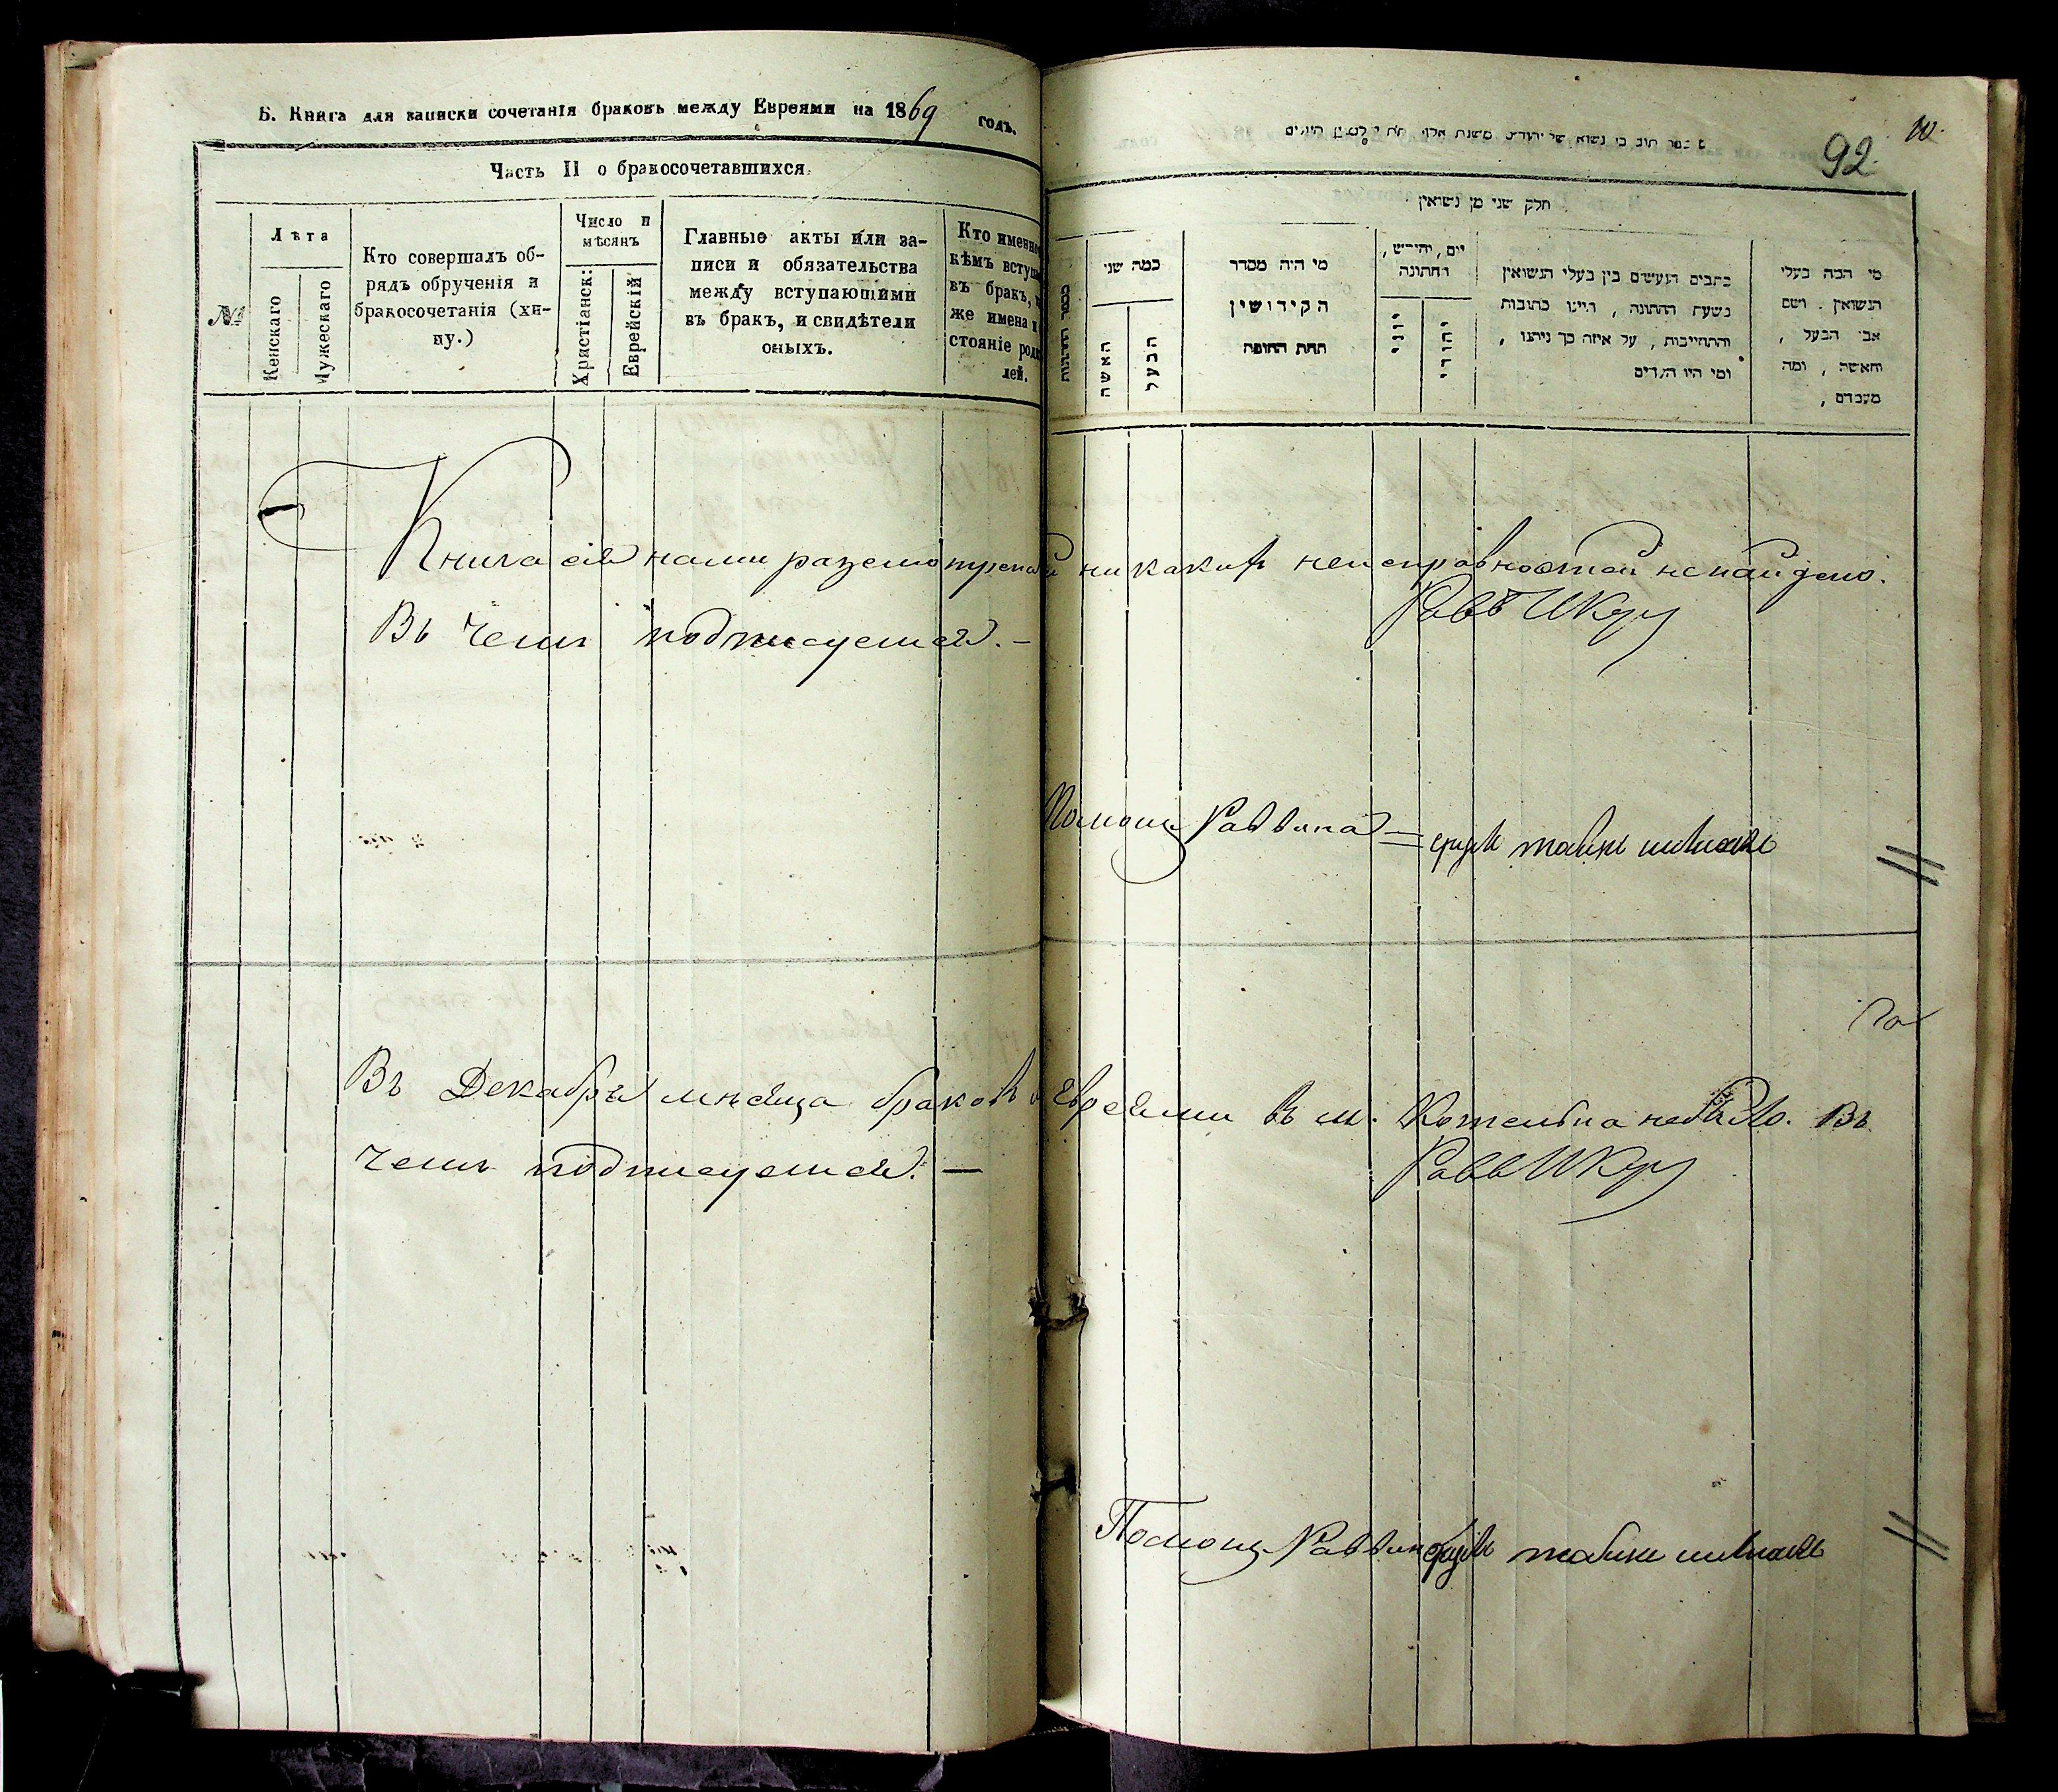 Б. Книга для записки сочетанія браковъ между Евреями на 1869 годъ.
Часть II о бракосочетавшихся.
№
Лѣта
Женскаго
Мужескаго
Кто совершалъ об-
рядъ обрученія и
бракосочетанія (хи-
пу.)
Число и
мѣсяцъ
Христіанск:
Еврейскій
Главные акты или за-
писи и обязательства
между вступающими
въ бракъ, и свидѣтели
оныхъ.
Кто именно
кѣмъ
въ бракъ,
же имена и
стояніе
лей.
92
10.
חלק שני מן נשואין
כמה שני
האשה
הבעל
מי היה מסדר
הקידושין
תחת החופה
יום, וחודש,
וחתונה
יוני
יהודי
כתבים הנעשים בין בעלי הנשואין
בשעת החתונה, היינו כתובות
והתחייבות, על איזה סך ניתנו,
ומי היו העדים
מי המה בעלי
הנשואין. ושם
אבי הבעל,
והאשה, ומה
מעמדם,
Книга сія нами разсмотрена и никакихъ неисправностей ненайдено.
Въ чемъ подписуемся. —
Равв Шкуд
Помощ Раввина =
Въ Декабрѣ мѣсяца браковъ Евреями въ м. небыло. Въ
чемъ подписуемся. —
Равв Шкуд
Помощ Раввин